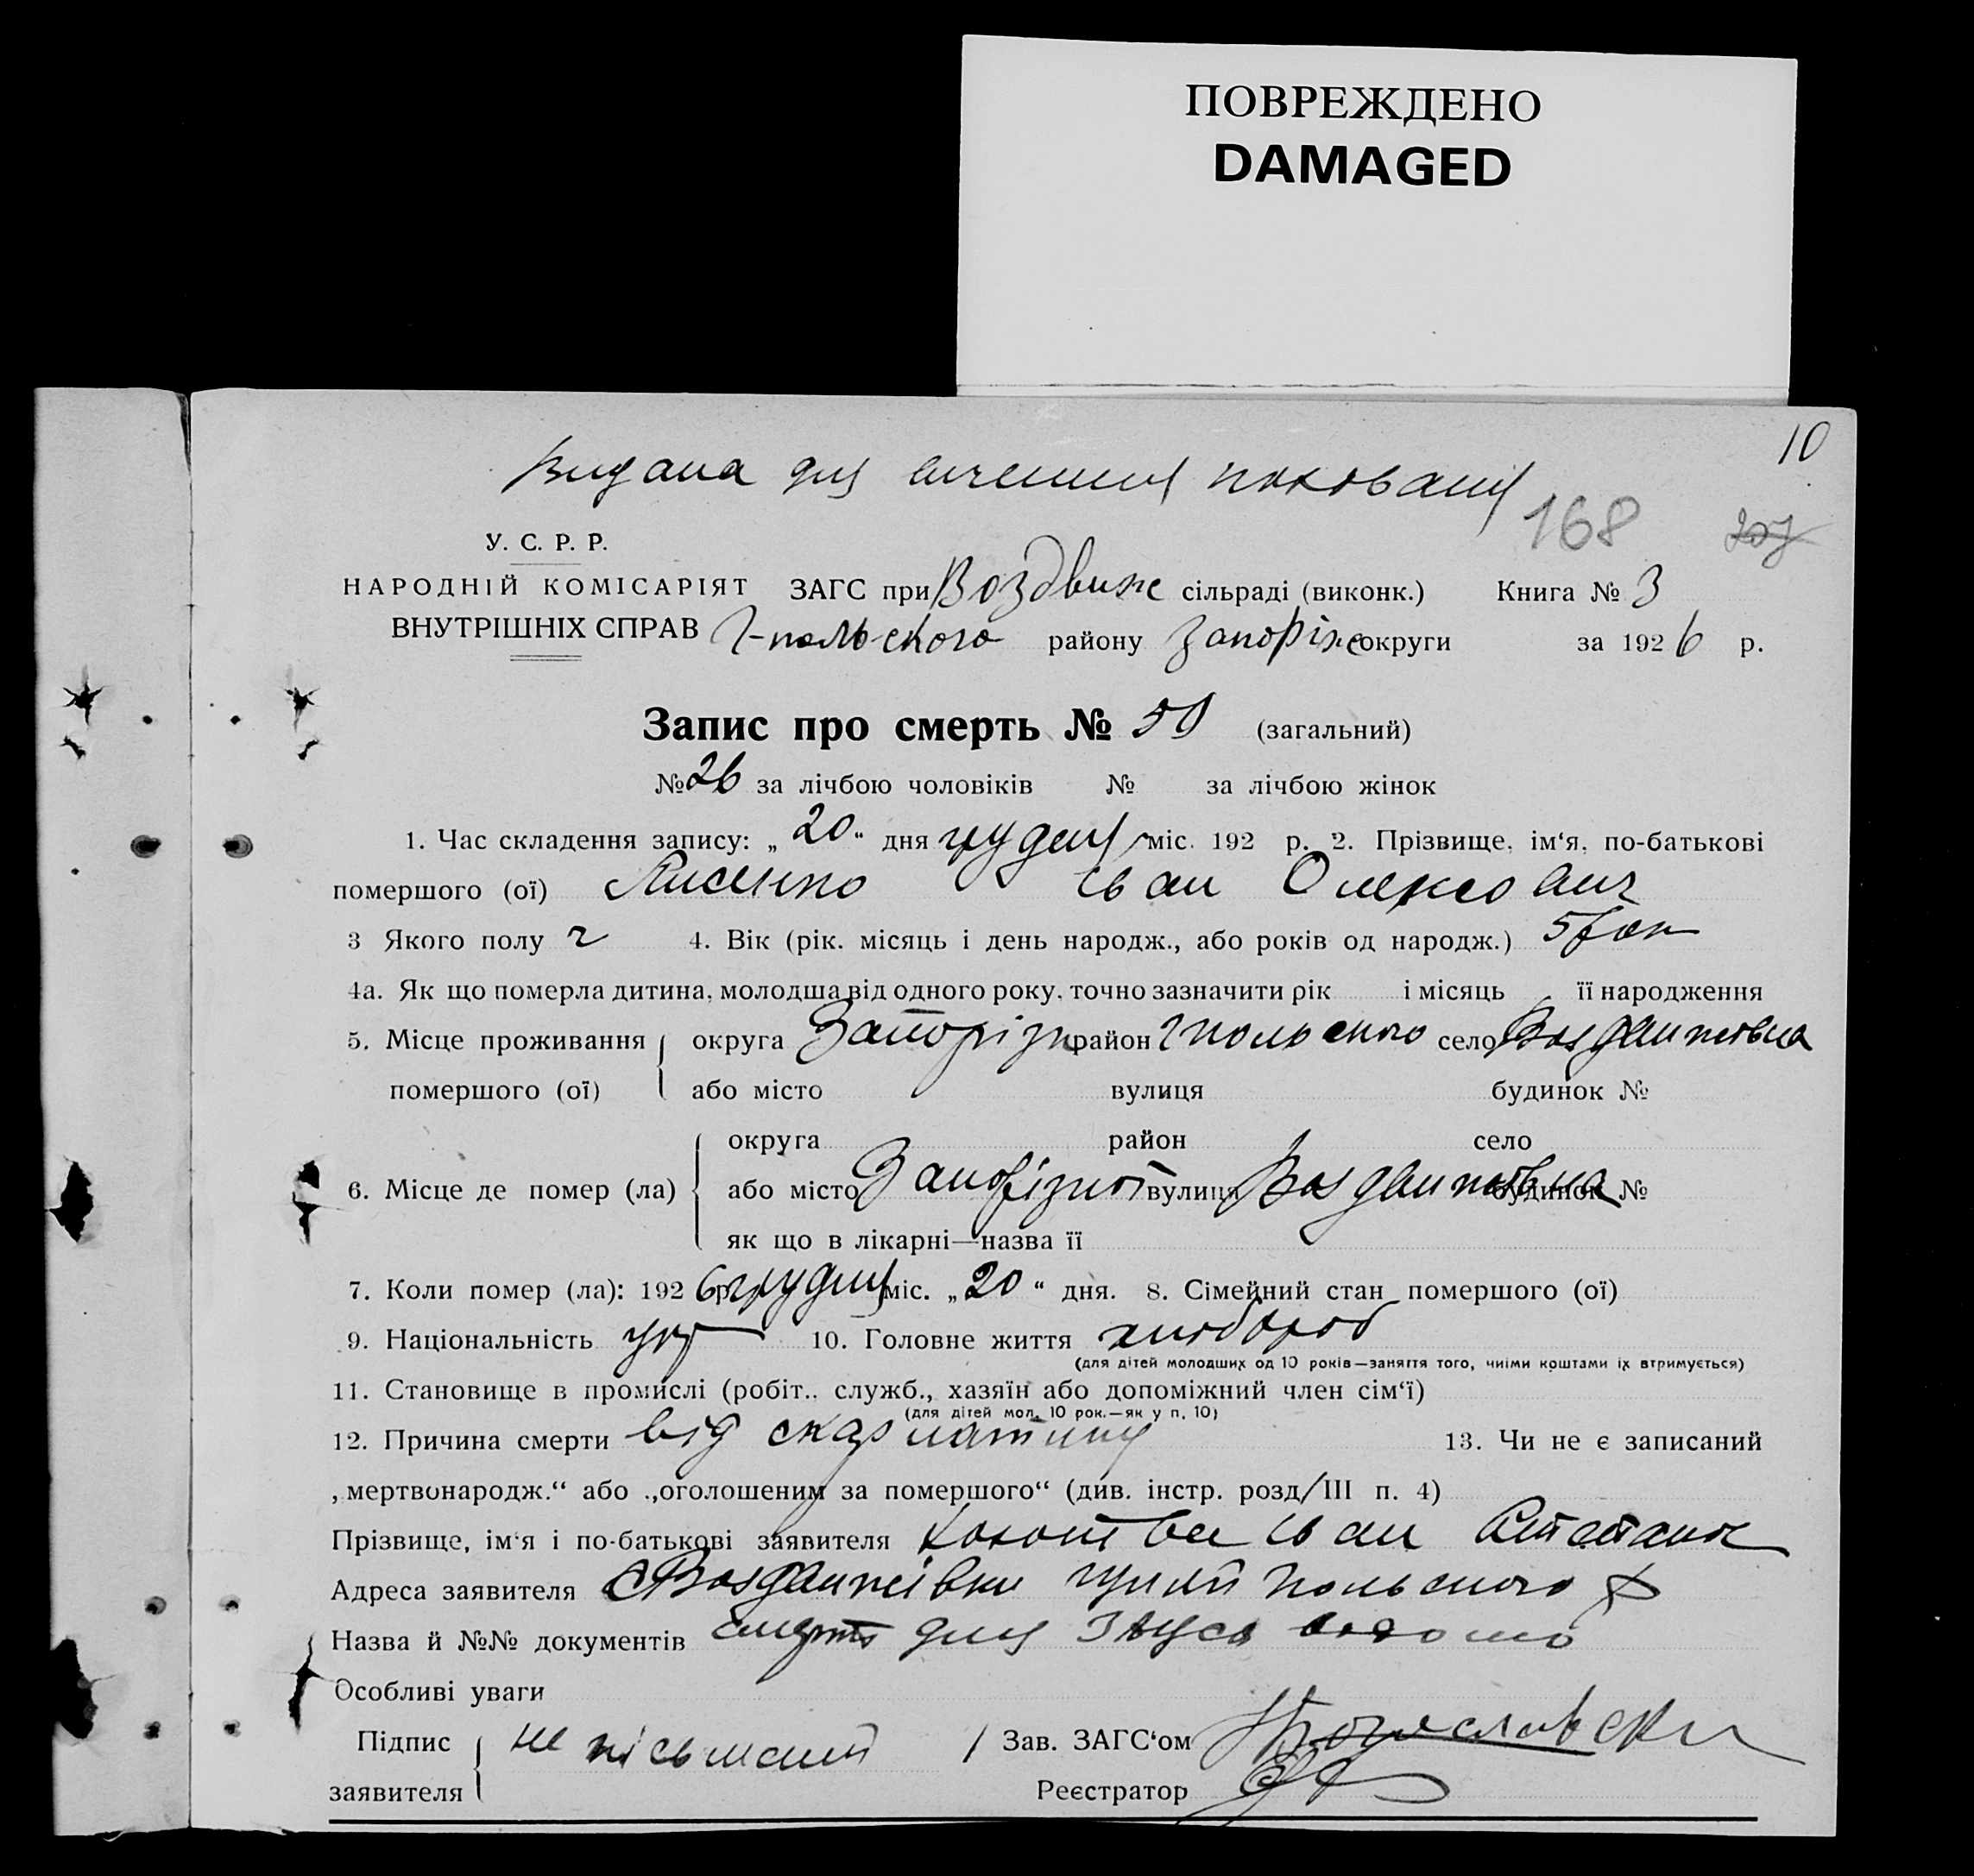 ПОВРЕЖДЕНО
DAMAGED
10
Видана для
168
У. С. Р. Р.
НАРОДНІЙ КОМІСАРІЯТ ЗАГС при Воздвиж сільраді (виконк.) Книга № 3
ВНУТРІШНІХ СПРАВ Г-польского району Запоріж округи за 1926 р.
Запис про смерть № (загальний)
№ 26 за лічбою чоловіків № за лічбою жінок
1. Час складення запису: „20“ дня грудня міс. 192 р. 2. Прізвище, ім‘я, по-батькові
помершого (ої) Лисенко Іван Олексович
3 Якого полу ч 4. Вік (рік. місяць і день народж., або років од народж.) 5
4а. Як що померла дитина, молодша від одного року, точно зазначити рік і місяць її народження
5. Місце проживання округа Запоріз район Гпольского село Воздвижевка
помершого (ої) або місто вулиця будинок №
округа район село
6. Місце де помер (ла) або місто Запорізькоі вулиця Воздвижевка будинок №
як що в лікарні—назва її
7. Коли помер (ла): 1926 р грудня міс. „20“ дня. 8. Сімейний стан помершого (ої)
9. Національність укр 10. Головне життя хлібороб
(для дітей молодших од 10 років—заняття того, чиїми коштами їх втримується)
11. Становище в промислі (робіт.. служб., хазяїн або допоміжний член сім‘ї)
(для дітей мол. 10 рок.—як у п. 10)
12. Причина смерти від скарлатини 13. Чи не є записаний
„мертвонародж.“ або „оголошеним за помершого“ (див. інстр. розд/III п. 4)
Прізвище, ім‘я і по-батькові заявителя Іван
Адреса заявителя с Воздвижівки Гуляйпольского р
Назва й №№ документів смерть для Загса
Особливі уваги
Підпис не письмений / Зав. ЗАГС‘ом
заявителя Реєстратор